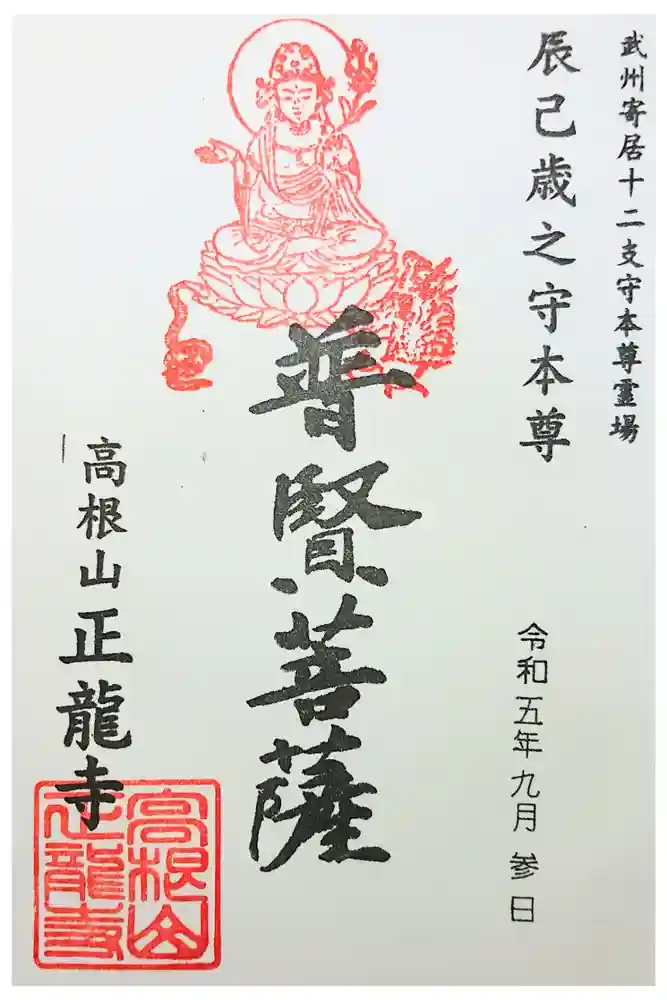 武州寄居十二支守本尊霊場
辰己歳之守本尊
令和五年九月参日
普賢菩薩
高根山正龍寺
高根山
正龍寺